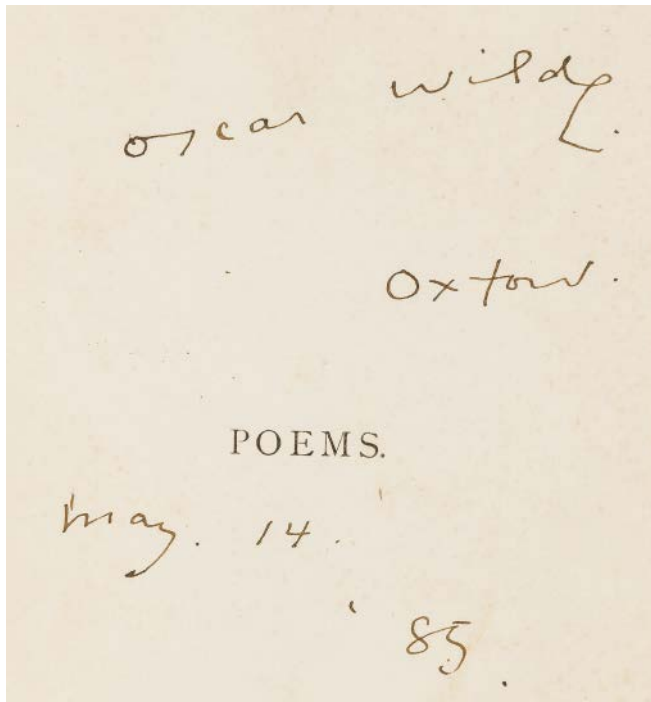 Oscar Wilde.
Oxford.
POEMS.
May. 14.
85.